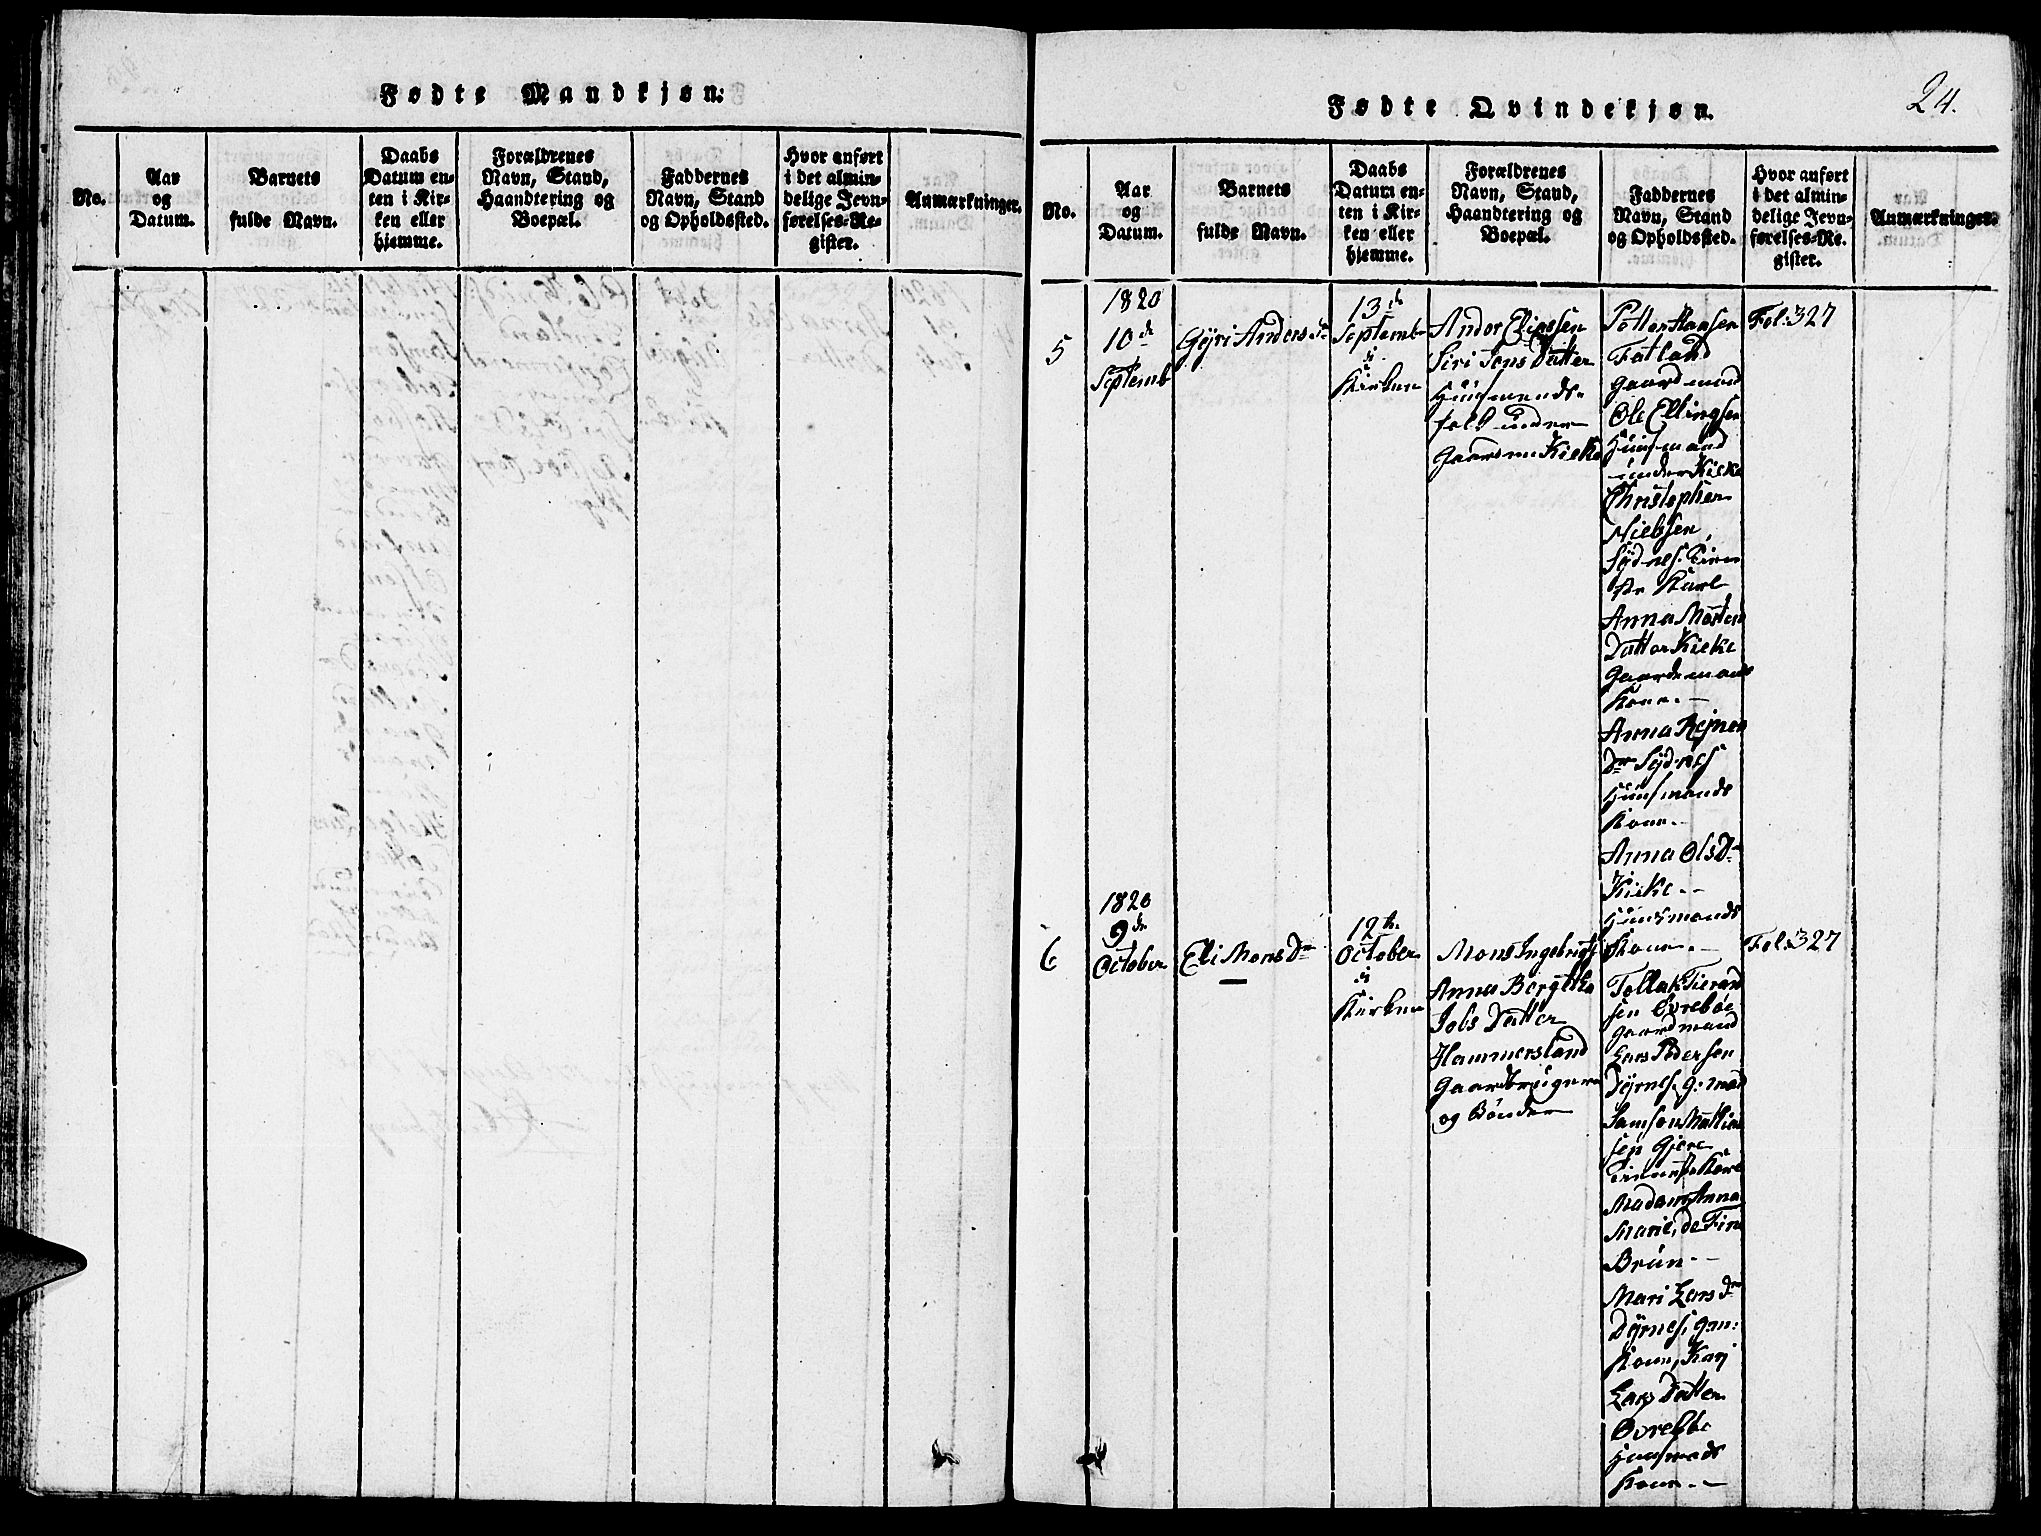 Fødte Mandkjøn:
No.
Aar
og
Datum.
Barnets
fulde Navn.
Daabs
Datum en-
ten i Kir-
ken eller
hjemme.
Forældrenes
Navn, Stand,
Haandtering og
Boepæl.
Faddernes
Navn, Stand
og Opholdssted.
Hvor anført
i det almin-
delige Jevn-
førelses-Re-
gister.
Anmærkninger.
24.
Fødte Qvindekjøn.
No.
Aar
og
Datum.
Barnets
fulde Navn.
Daabs
Datum en-
ten i Kir-
ken eller
hjemme.
Forældrenes
Navn, Stand,
Haandtering og
Boepæl.
Faddernes
Navn, Stand
og Opholdssted.
Hvor anført
i det almin-
delige Jevn-
førelses-Re-
gister.
Anmærkninger.
5
1820
10de
Septemb
Gÿri Anders Dr
13de
Septembr
i
Kirken
Ander Eliassen
Siri Jens Datter
Huusmands-
folk under
Gaarden Kieke
Petter Hansen
Fatland
gaardmand
Ole Ellingsen
Huusmand
under Kieke
Christopher
Nielssen
Sÿdnes. Tiene
ste Karl
Anna Mortens
Datter Kieke
Gaardemands
Kone.-
Anna Rejner
Dr Sÿdnes
Huusmands
Kone.-
Anna OlsDr
Kieke.-
Huusmands
Kone.-
Fol:327
6
1820
9de
October
Eli Mons Dr
12te
October
i
Kirken
Mons Ingebrigts
Anna Bergitha
Jobs Datter
Hammersland
Gaardbrugere
og Bønder
Tollak Tieran
sen Øvrebøe
gaardmand
Lars Pedersen
Dÿrnes. g: mand
Samson Mathias
sen Gjere
Tieneste Karl
Madam Anna
Marie, de Fine
Brun.-
Mari Lars Dr
Dÿrnes, gm:
Kone, Kari
Lars Datter
Øvrebøe
Huusmands
Kone.-
Fol:327